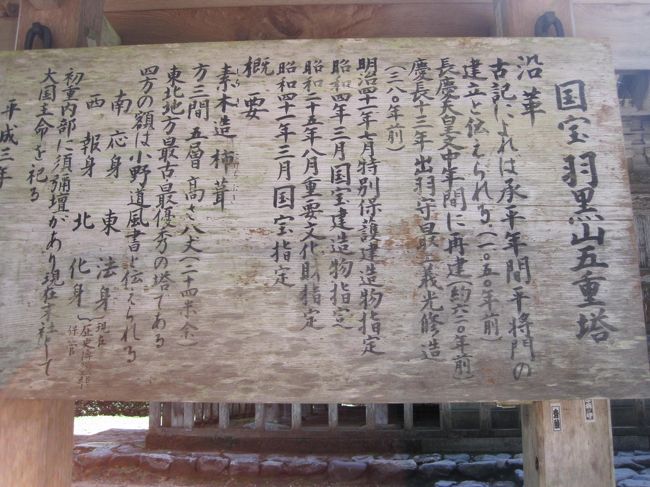 国宝 羽黒山五重塔
沿革
古記によれば承平年間平将門の
建立と伝えられる(一〇五〇年前)
長慶天皇文中年間に再建(約六一〇年前)
慶長十三年出羽守最上義光修造
(三八〇年前)
明治四十一年七月特別保護建造物指定
昭和四年三月国宝建造物指定
昭和二十五年八月重要文化財指定
昭和四十一年三月国宝指定
概要
素木造 柿葺
方三間五層 高さ八丈(二十四米余)
東北地方最古最優秀の塔である
四方の額は小野道風書と伝えられる
南 応身 東 法身(現在歴史博物館保管
西 報身 北 化身
初重内部に須弥壇があり現在末社として
大国主命を祀る
平成三年